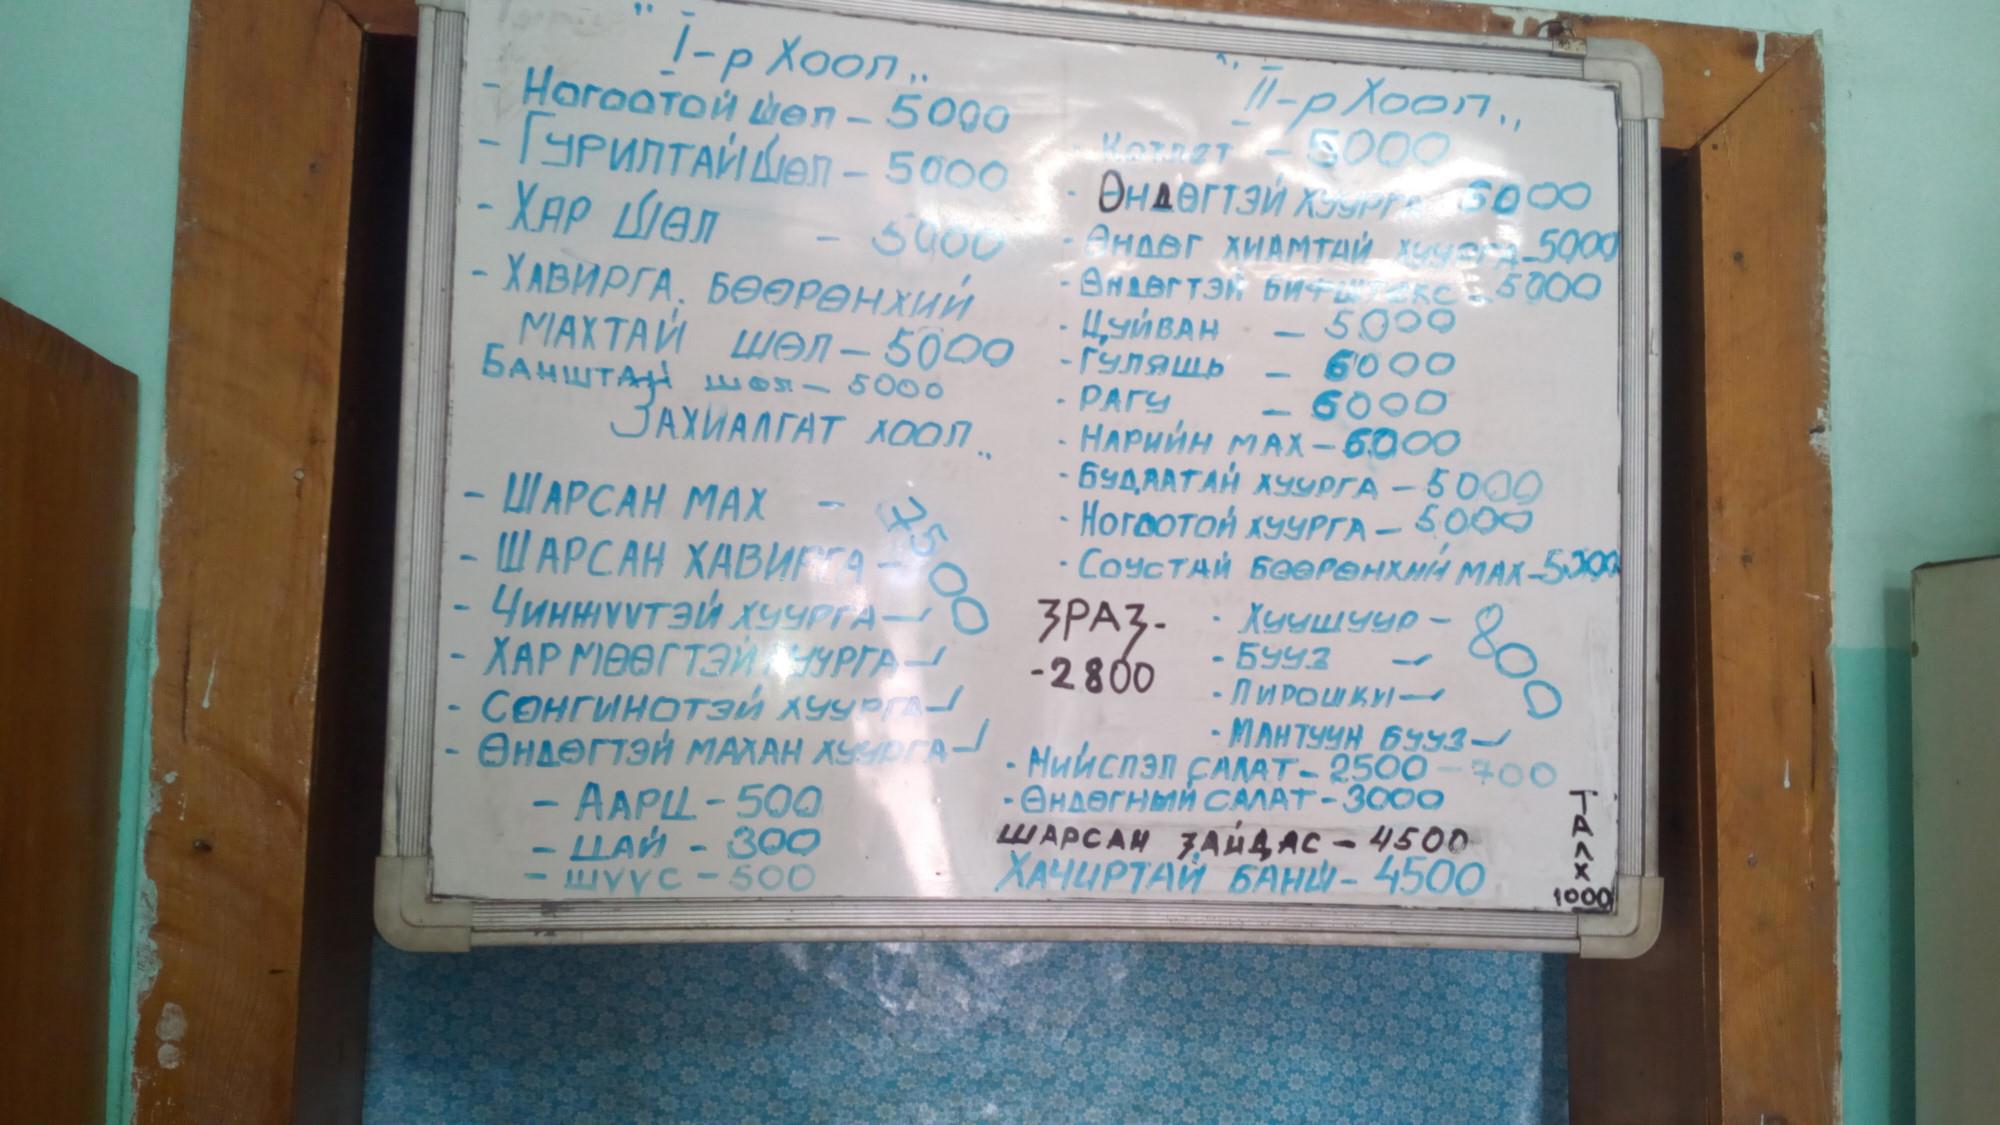 "I-р Хоол„
- Ногоотой шөл - 5000
- Гурилтай шөл - 5000
- Хар шөл - 5000
- Хавирга. Бөөрөнхий
махтай шөл - 5000
Банштай шөл - 5000
Захиалгат хоол„
- Шарсан мах - 7500
- Шарсан хавирга -
- Чинжүүтэй хуурга - ✓
- Хар мөөгтэй хуурга - ✓
- Сонгинотэй хуурга - ✓
- Өндөгтэй махан хуурга - ✓
- Аарц - 500
- Цай - 300
- Шүүс - 500
"II-р Хоол„
- Котлет - 5000
- Өндөгтэй хуурга 6000
- Өндөг хиамтай хуурга - 5000
- Өндөгтэй бифштекс - 5000
- Цуйван - 5000
- Гуляшь - 6000
- Рагу - 6000
- Нарийн мах - 6000
- Будаатай хуурга - 5000
- Ногоотой хуурга - 5000
- Соустай бөөрөнхий мах - 5000
Зраз-
-2800
- Хуушуур - 800
- Бууз - ✓
- Пирошки - ✓
- Мантуун бууз - ✓
- Нийслэл салат - 2500 - 700
- Өндөгный салат - 3000
Шарсан зайдас - 4500
Хачиртай банш - 4500
Талх
1000